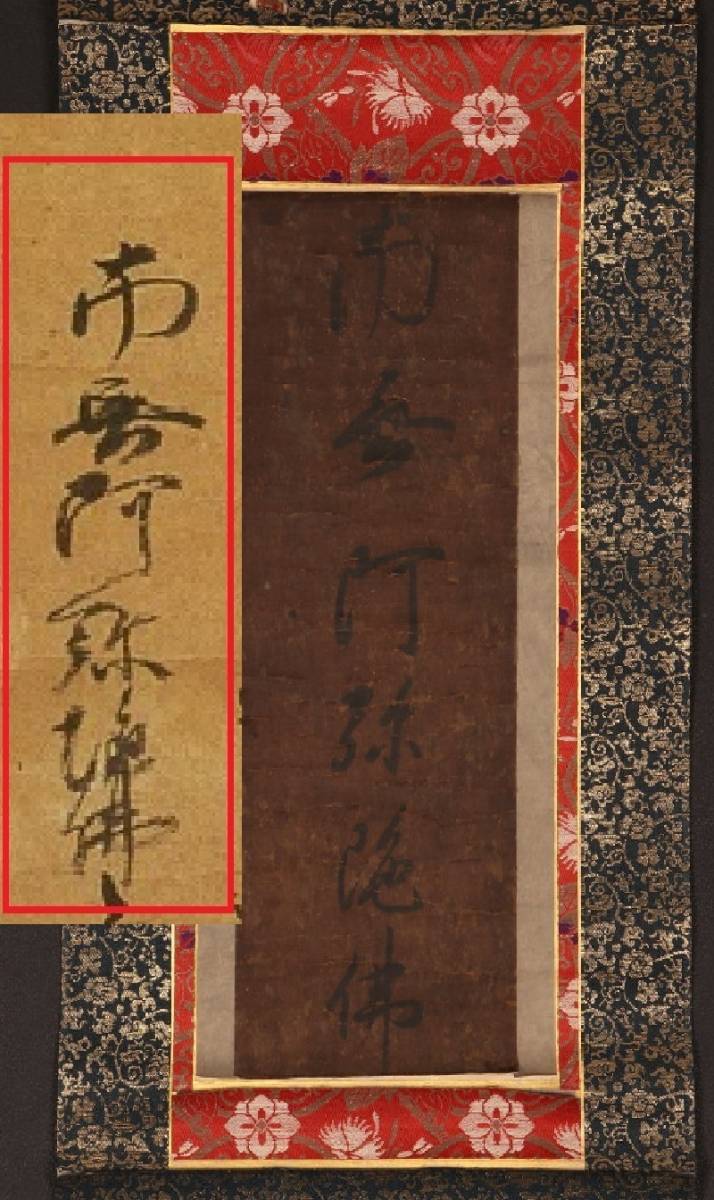 南無阿弥陀佛
南无阿弥陀佛